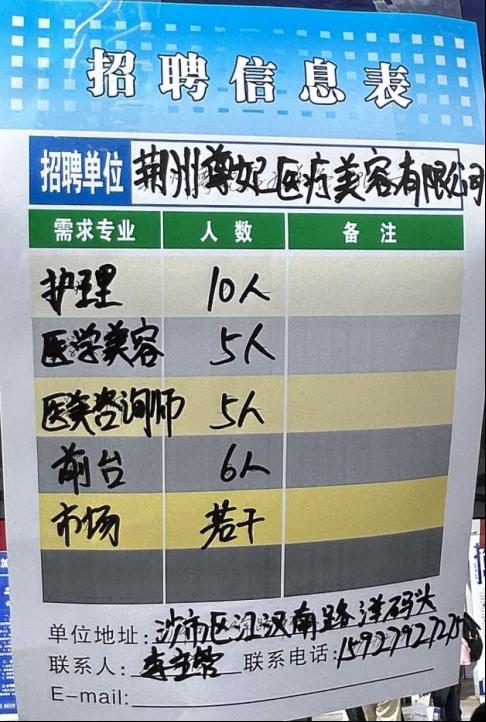 招聘信息表
招聘单位 荆州尊妃医疗美容有限公司
需求专业 人数 备注
护理 10人
医学美容 5人
医美咨询师 5人
前台 6人
市场 若干
单位地址: 沙市区江汉南路洋码头
联系人: 联系电话:
E-mail: